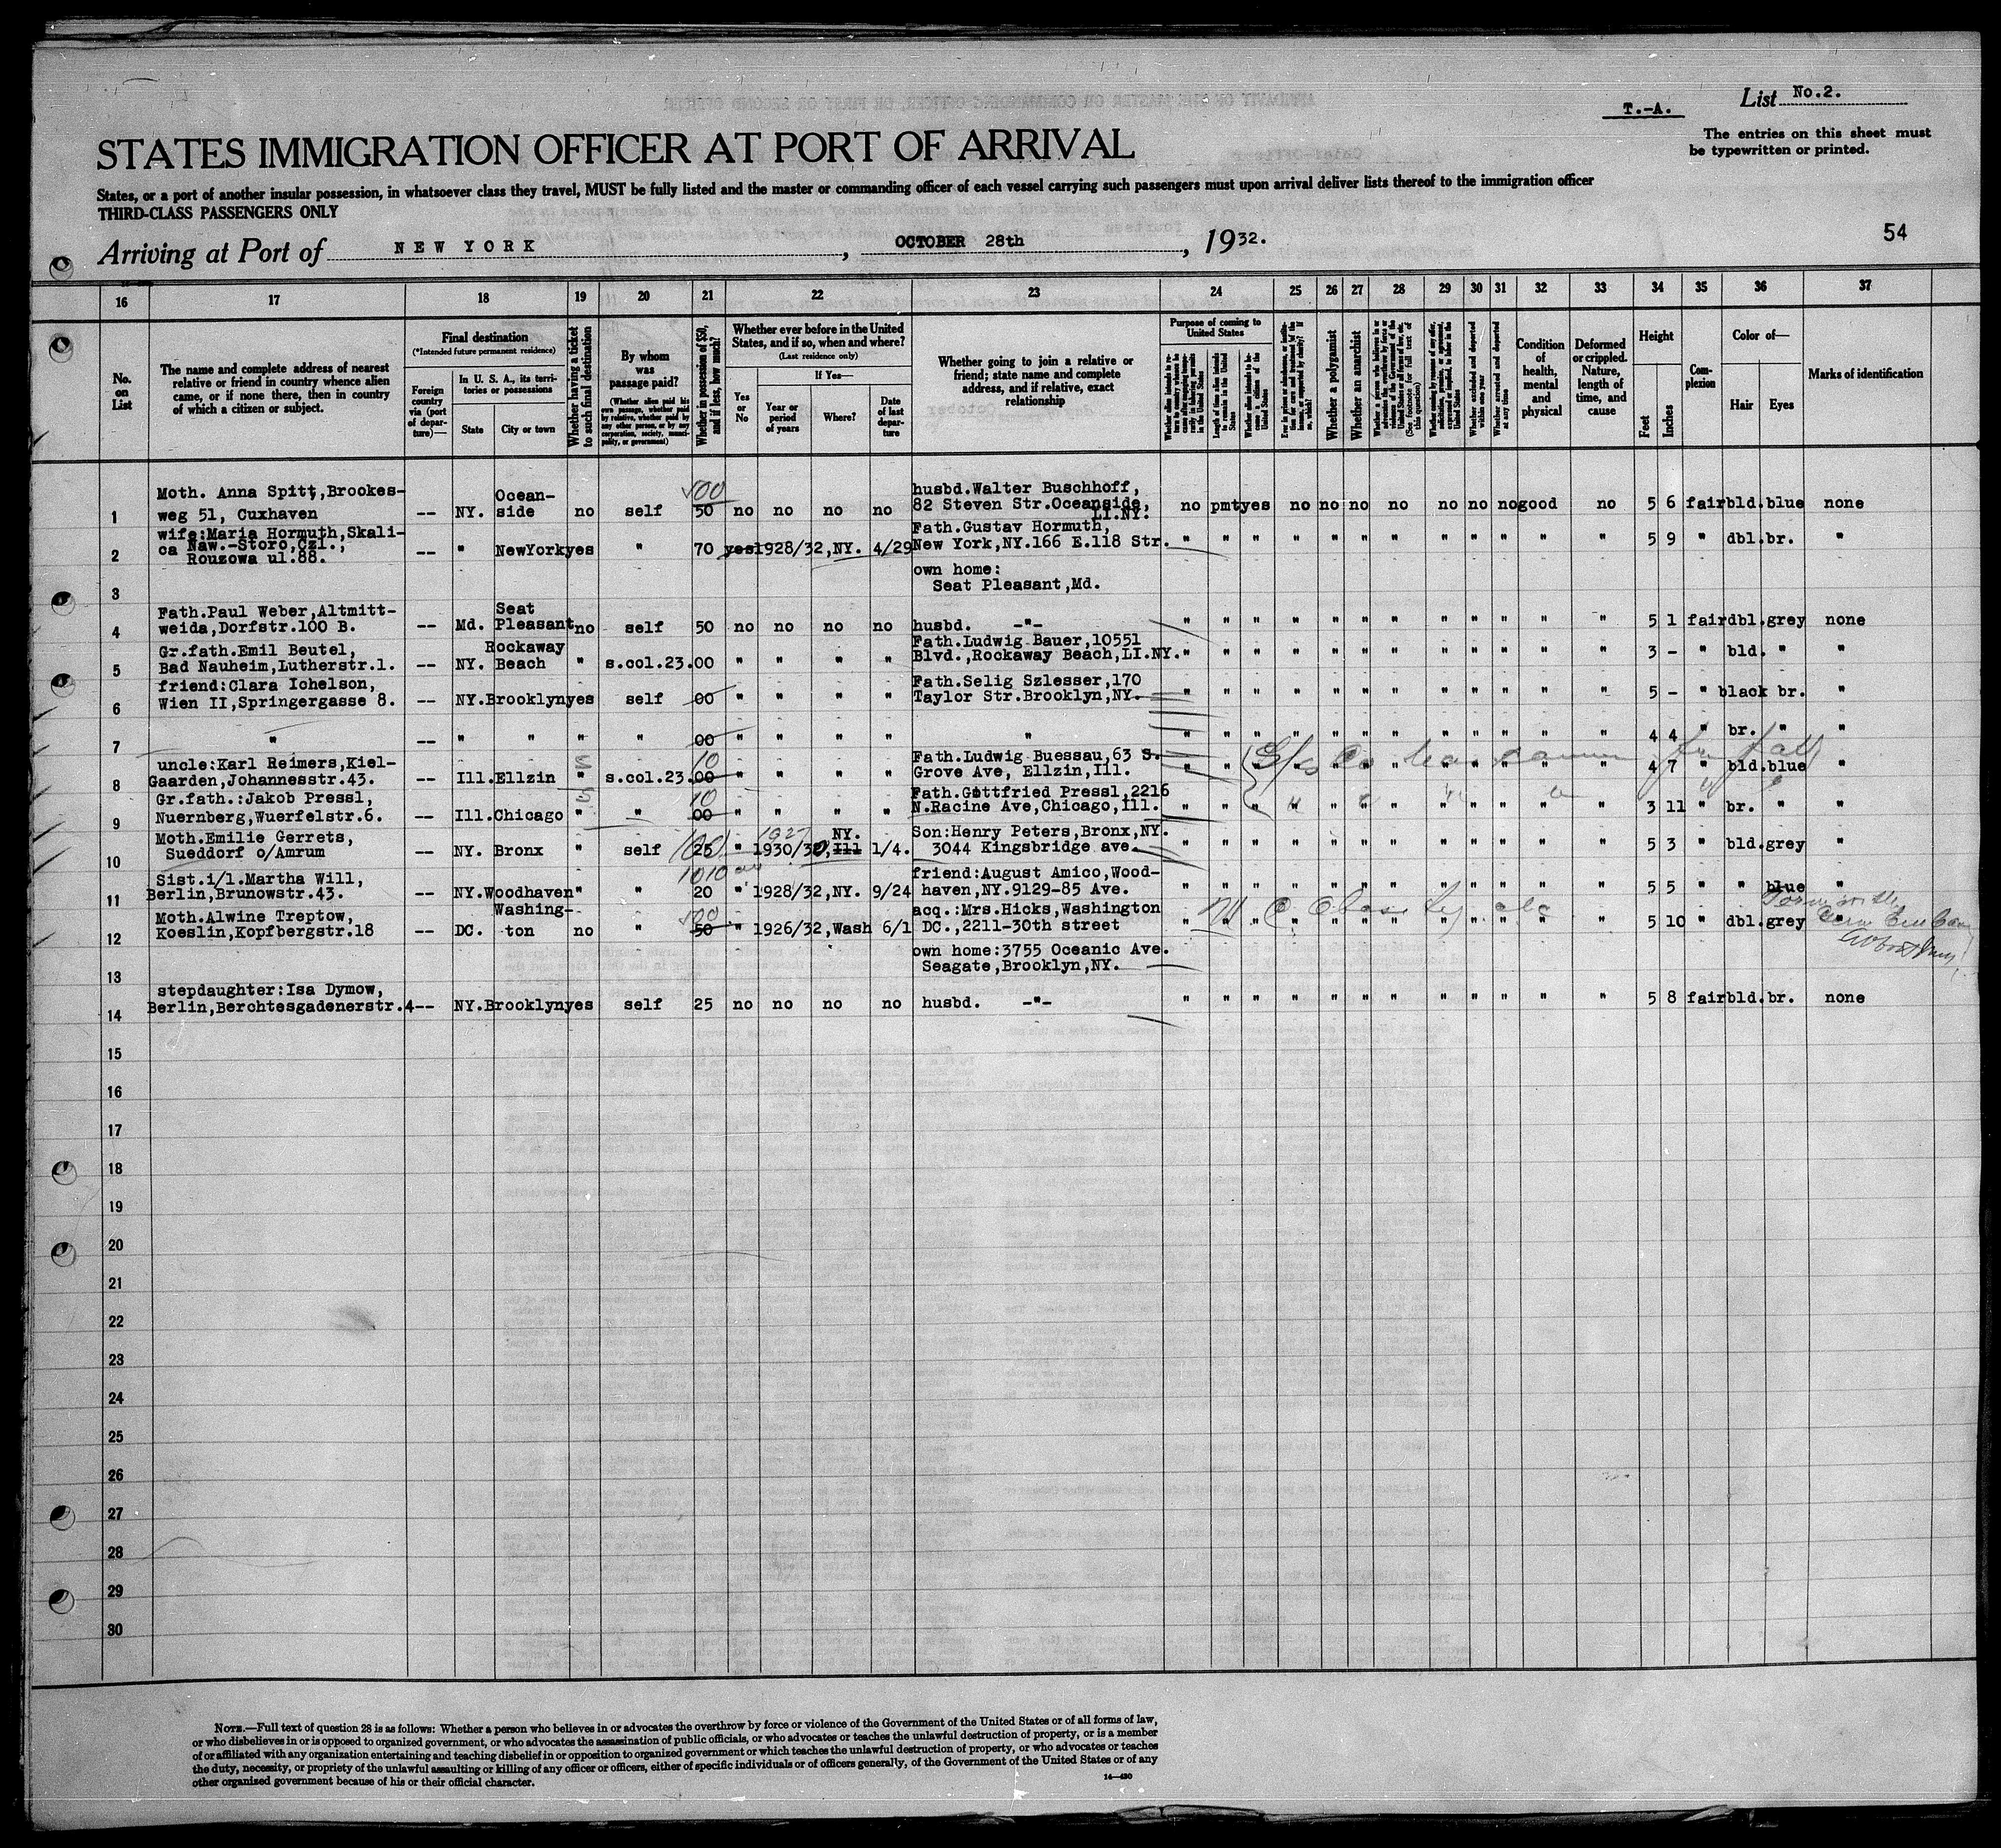 T.-A.
List No.2.
The entries on this sheet must
be typewritten or printed.
STATES IMMIGRATION OFFICER AT PORT OF ARRIVAL
States, or a port of another insular possession, in whatsoever class they travel, MUST be fully listed and the master or commanding officer of each vessel carrying such passengers must upon arrival deliver lists thereof to the immigration officer
THIRD-CLASS PASSENGERS ONLY
54
Arriving at Port of NEW YORK, OCTOBER 28th, 1932.
16 17 18 19 20 21 22 23 24 25 26 27 28 29 30 31 32 33 34 35 36 37
No. on List
The name and complete address of nearest relative or friend in country whence alien came, or if none there, then in country of which a citizen or subject.
Final destination
(*Intended future permanent residence)
Foreign country via (port of departure)—
In U. S. A., its territories or possessions
State
City or town
Whether having a ticket to such final destination
By whom was passage paid?
(Whether alien paid his own passage, whether paid by relative, whether paid by any other person, or by any corporation, society, municipality, or government)
Whether in possession of $50, and if less, how much?
Whether ever before in the United States, and if so, when and where?
(Last residence only)
If Yes—
Yes or No
Year or period of years
Where?
Date of last departure
Whether going to join a relative or friend; state name and complete address, and if relative, exact relationship
Purpose of coming to United States
Length of time alien intends to remain in the United States
Whether a polygamist
Whether an anarchist
Whether excluded and deported within one year
Whether arrested and deported at any time
Condition of health, mental and physical
Deformed or crippled. Nature, length of time, and cause
Height
Feet
Inches
Complexion
Color of—
Hair
Eyes
Marks of identification
Moth. Anna Spitt,Brookes-
1 weg 51, Cuxhaven -- NY. Ocean-side no self 50 no no no no husbd.Walter Buschhoff, 82 Steven Str.Oceanside, LI.NY. no pmt yes no no no no no no no good no 5 6 fair bld. blue none
wife:Maria Hormuth,Skali-
2 ca Naw.-Storo,Czl., Rouzowa ul.88. -- " NewYork yes " 70 yes 1928/32,NY. 4/29 Fath.Gustav Hormuth, New York,NY.166 E.118 Str. " " " " " " " " " " " " 5 9 " dbl.br. "
3 own home: Seat Pleasant,Md.
Fath.Paul Weber,Altmitt-
4 weida,Dorfstr.100 B. -- Md. Seat Pleasant no self 50 no no no no husbd. -"- " " " " " " " " " " " " 5 1 fair dbl.grey none
Gr.fath.Emil Beutel,
5 Bad Nauheim,Lutherstr.1. -- NY. Rockaway Beach " s.col.23.00 " " " " Fath.Ludwig Bauer,10551 Blvd.,Rockaway Beach,LI.NY. " " " " " " " " " " " " 3 - " bld. " "
friend:Clara Ichelson,
6 Wien II,Springergasse 8. -- NY.Brooklyn yes self 00 " " " " Fath.Selig Szlesser,170 Taylor Str.Brooklyn,NY. " " " " " " " " " " " " 5 - " black br. "
7 " -- " " " " 00 " " " " " " " " " " " " " " " " " 4 4 " br. " "
uncle:Karl Reimers,Kiel-
8 Gaarden,Johannesstr.43. -- Ill.Ellzin " s.col.23.00 10 " " " " Fath.Ludwig Buessau,63 S. Grove Ave, Ellzin,Ill. " " " " " " " " " " " " 4 7 " bld.blue "
Gr.fath.:Jakob Pressl,
9 Nuernberg,Wuerfelstr.6. -- Ill.Chicago " " 00 10 " " " " Fath.Gottfried Pressl,2216 N.Racine Ave,Chicago,Ill. " " " " " " " " " " " " 3 11 " br. " "
Moth.Emilie Gerrets,
10 Sueddorf o/Amrum -- NY. Bronx " self 25 100 " 1927 1930/30, Ill NY. 1/4. Son:Henry Peters,Bronx,NY. 3044 Kingsbridge ave. " " " " " " " " " " " " 5 3 " bld.grey "
Sist.i/l.Martha Will,
11 Berlin,Brunowstr.43. -- NY.Woodhaven " " 20 " 1928/32,NY. 9/24 friend:August Amico,Wood-haven,NY.9129-85 Ave. " " " " " " " " " " " " 5 5 " " blue "
Moth.Alwine Treptow,
12 Koeslin,Kopfbergstr.18 -- DC. Washing-ton no " 50 " 1926/32,Wash 6/1 acq.:Mrs.Hicks,Washington DC.,2211-30th street " " " " " " " " " " " " 5 10 " dbl.grey
13 own home:3755 Oceanic Ave. Seagate,Brooklyn,NY.
stepdaughter:Isa Dymow,
14 Berlin,Berchtesgadenerstr.4 -- NY.Brooklyn yes self 25 no no no no husbd. -"- " " " " " " " " " " " " 5 8 fair bld.br. none
15
16
17
18
19
20
21
22
23
24
25
26
27
28
29
30
NOTE.—Full text of question 28 is as follows: Whether a person who believes in or advocates the overthrow by force or violence of the Government of the United States or of all forms of law,
or who disbelieves in or is opposed to organized government, or who advocates the assassination of public officials, or who advocates or teaches the unlawful destruction of property, or is a member
of or affiliated with any organization entertaining and teaching disbelief in or opposition to organized government or which teaches the unlawful destruction of property, or who advocates or teaches
the duty, necessity, or propriety of the unlawful assaulting or killing of any officer or officers, either of specific individuals or of officers generally, of the Government of the United States or of any
other organized government because of his or their official character.
14—430